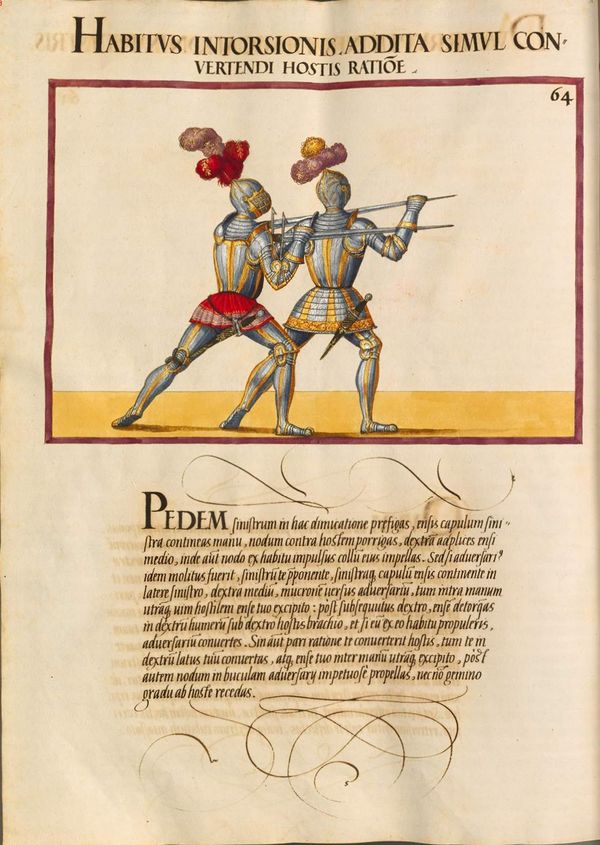 HABITVS INTORSIONIS ADDITA SIMVL CON-
VERTENDI HOSTIS RATIŌE.
64
PEDEM sinistrum in hac dimicatione pręfigas, ensis capulum sini-
stra contineas manu, nodum contra hostem porrigas, dextrā adplices ensi
medio, inde aūt nodo ex habitu impulsus collū eius impellas. Sed si adversariꝰ
idem molitus fuerit, sinistrū te pponente, sinistraq; capulū ensis continente in
latere sinistro, dextra mediū, mucronē versus adversariū, tum intra manum
utrāq; vim hostilem ense tuo excipito: pōst subsequutus dextro, ensē detorq̄as
in dextrū humerū sub dextro hostis brachio, et si eū ex eo habitu propuleris,
adversariū convertes. Sin aūt pari ratione te converterit hostis, tum te in
dextrū latus tuū convertas, atq; ense tuo inter manū utrāq; excipito, pōst
autem nodum in buculam adversarij impetuosè propellas, necnō gemino
gradu ab hoste recedas.
5